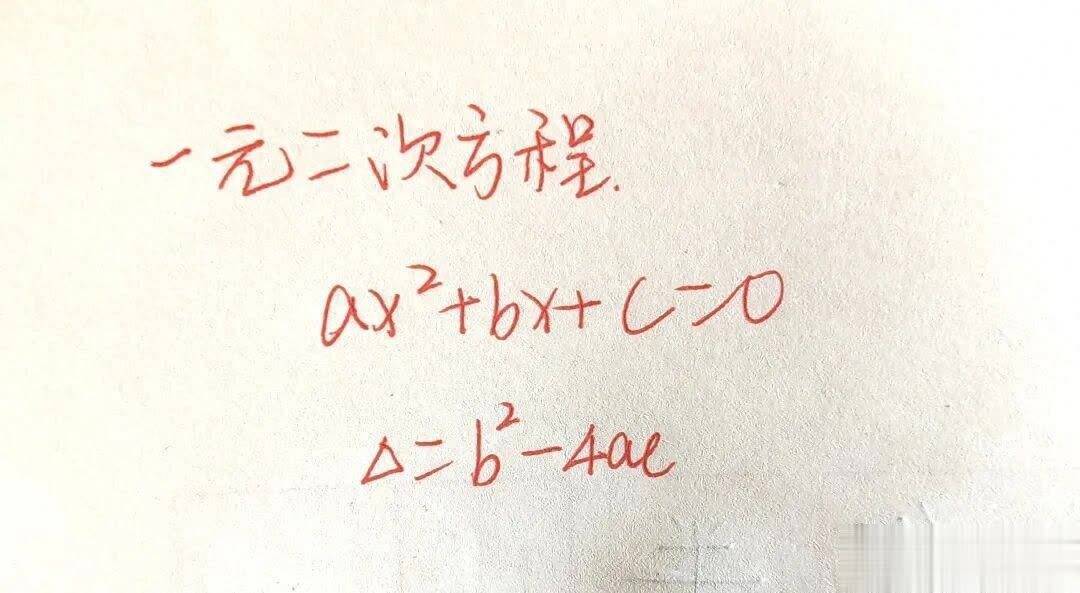 一元二次方程.
ax²+bx+c=0
Δ=b²-4ac